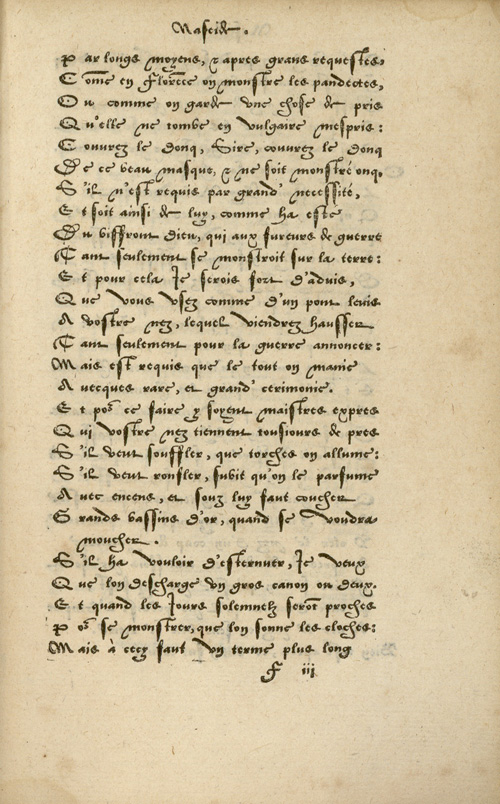 Naseide.
Par longs moyens, & apres grans requestes,
Come en Florece on monstre les pandectes,
Ou comme on garde une chose de pris
Qu'elle ne tombe en vulgaire mespris:
Couvrez le donq, Sire, couvrez le donq
De ce beau masque, & ne soit monstré onq,
S'il n'est requis par grand' necessité,
Et soit ainsi de luy, comme ha esté
Du biffront dieu, qui aux fureurs de guerre
Tant seulement se monstroit sur la terre:
Et pour cela Ie serois fort d'aduis,
Que vous vsez comme d'un pont leuis
A vostre nez, lequel viendrez hausser
Tant seulement pour la guerre annoncer:
Mais est requis que le tout on manie
Avecques rare, et grand' cerimonie.
Et por ce faire y soyent maistres expres
Qui vostre nez tiennent tousiours de pres
S'il veut souffler, que torches on allume:
S'il veut ronfler, subit qu'on le parfume
Avec encens, et souz luy faut coucher
Grands bassins d'or, quand se voudra
moucher.
S'il ha vouloir d'esternuer, Ie veux
Que lon descharge un gros canon ou deux.
Et quand les Iours solemnelz serot proches
Por se monstrer, que lon sonne les cloches:
Mais à cecy faut un terme plus long
F iii